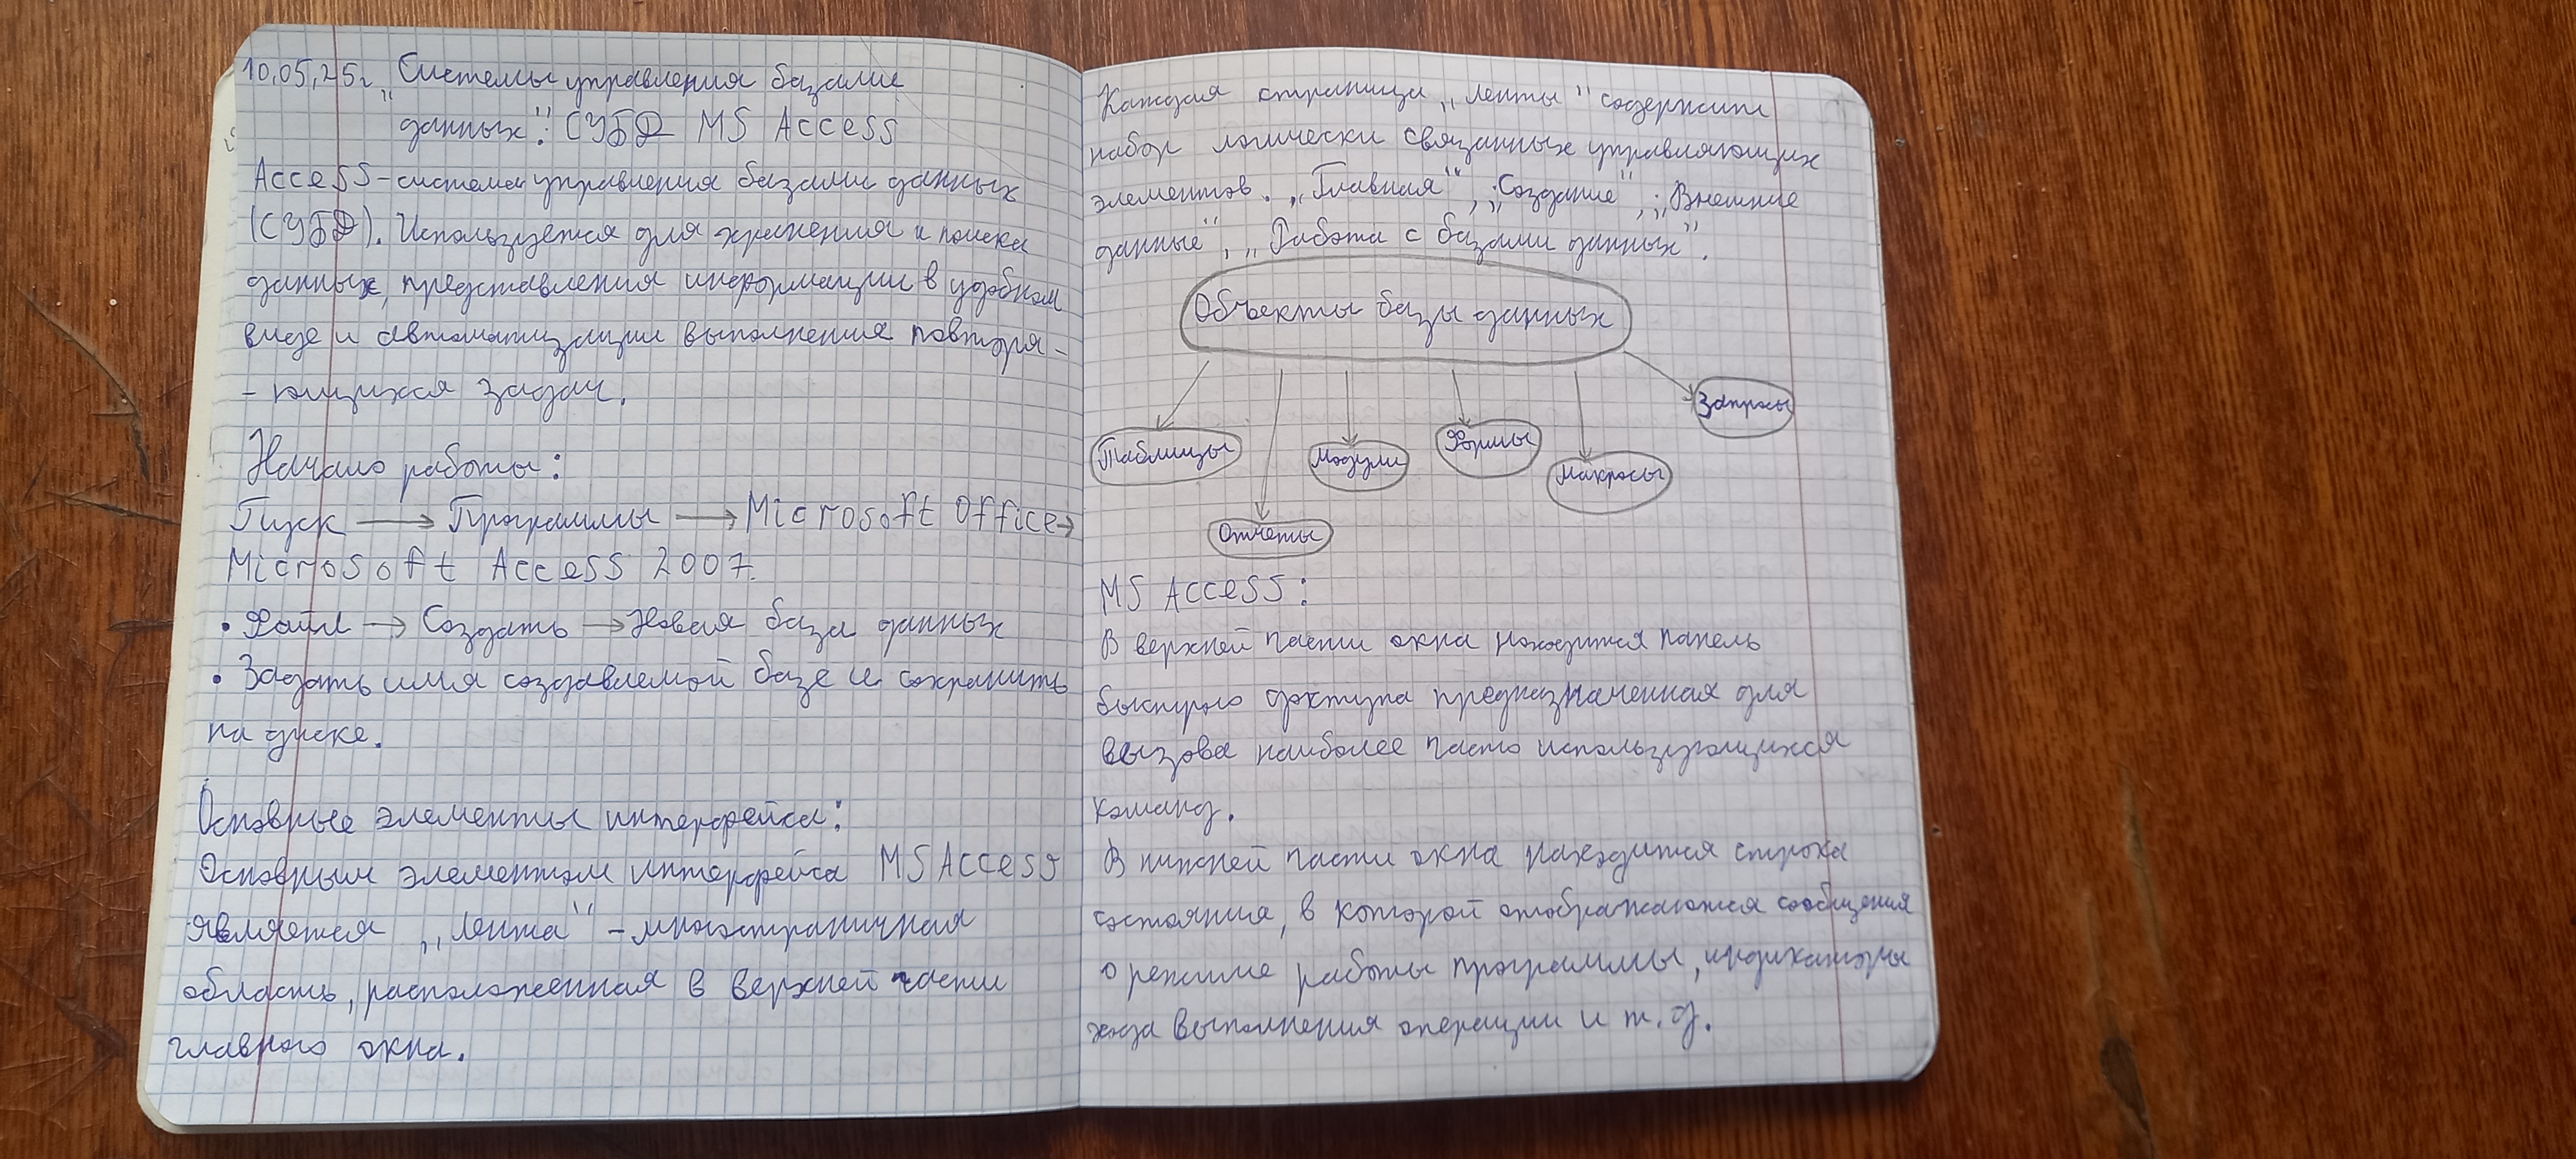 10,05,25г. „Системы управления базами
данных“. СУБД MS Access
Access-система управления базами данных
(СУБД). Используется для хранения и поиска
данных, представления информации в удобном
виде и автоматизации выполнения повторя-
- ющихся задач.
Начало работы:
Пуск → Программы → Microsoft Office →
Microsoft Access 2007.
• Файл → Создать → Новая база данных
• Задать имя создаваемой базе и сохранить
на диске.
Основные элементы интерфейса:
Основным элементом интерфейса MS Access
является „Лента“ - многостраничная
область, расположенная в верхней части
главного окна.
Каждая страница „Ленты“ содержит
набор логически связанных управляющих
элементов. „Главная“, „Создание“, „Внешние
данные“, „Работа с базами данных“.
Объекты базы данных
Запросы
Таблицы
Модули
Формы
Макросы
Отчеты
MS Access:
В верхней части окна находится панель
быстрого доступа предназначенная для
вызова наиболее часто использующихся
команд.
В нижней части окна находится строка
состояния, в которой отображаются сообщения
о режиме работы программы, индикаторы
хода выполнения операции и т.д.